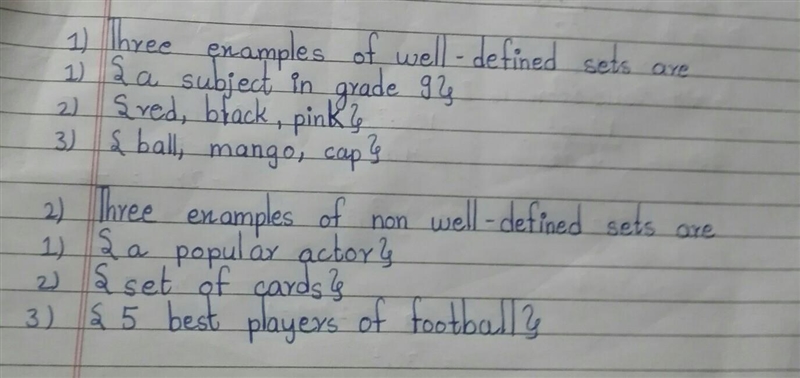 1) Three examples of well-defined sets are
1) {a subject in grade 9}
2) {red, black, pink}
3) {ball, mango, cap}
2) Three examples of non well-defined sets are
1) {a popular actor}
2) {set of cards}
3) {5 best players of football}